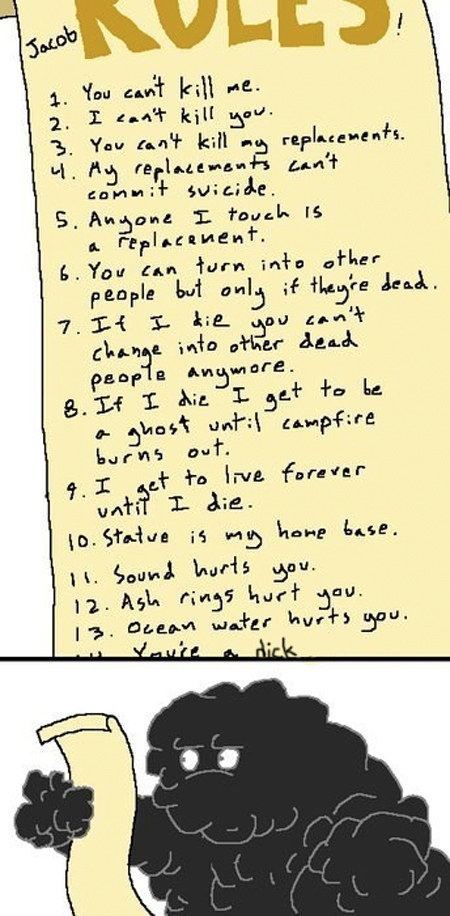 RULES!
Jacob
1. You can't kill me.
2. I can't kill you.
3. You can't kill my replacements.
4. My replacements can't
commit suicide.
5. Anyone I touch is
a replacement.
6. You can turn into other
people but only if they're dead.
7. If I die you can't
change into other dead
people anymore.
8. If I die I get to be
a ghost until campfire
burns out.
9. I get to live forever
until I die.
10. Statue is my home base.
11. Sound hurts you.
12. Ash rings hurt you.
13. Ocean water hurts you.
14. You're a dick